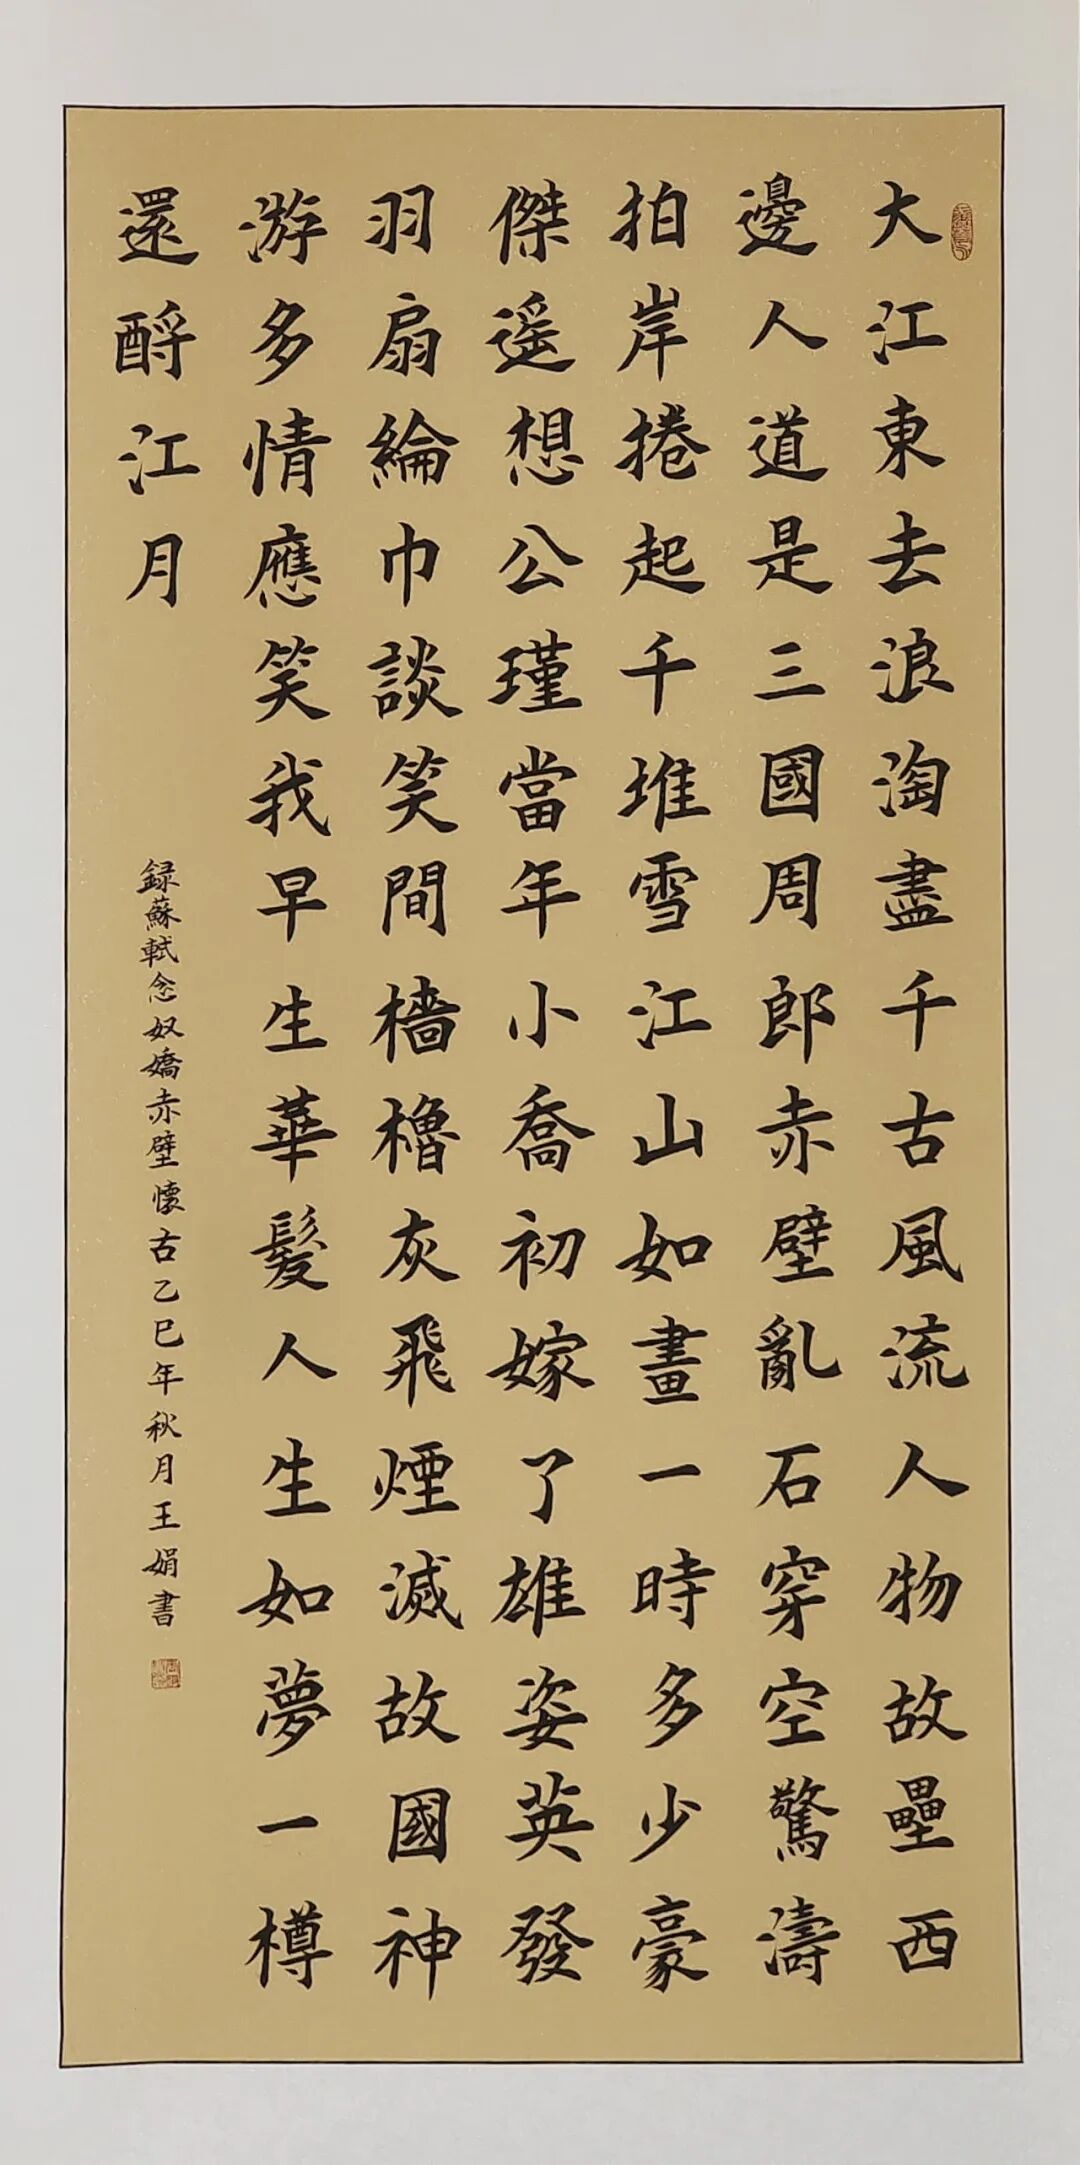 大江東去浪淘盡千古風流人物故壘西
邊人道是三國周郎赤壁亂石穿空驚濤
拍岸捲起千堆雪江山如畫一時多少豪
傑遥想公瑾當年小喬初嫁了雄姿英發
羽扇綸巾談笑間檣櫓灰飛煙滅故國神
游多情應笑我早生華髮人生如夢一樽
還酹江月
録蘇軾念奴嬌赤壁懷古乙巳年秋月王娟書